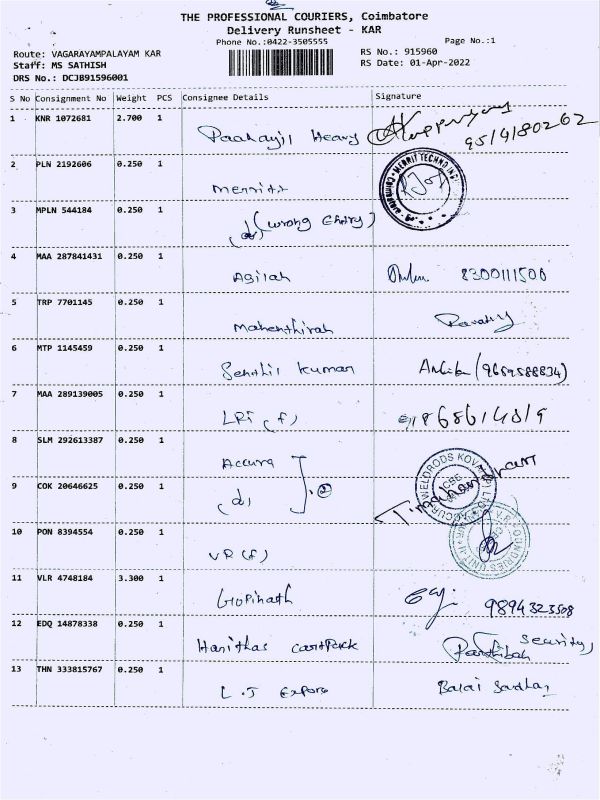 THE PROFESSIONAL COURIERS, Coimbatore
Delivery Runsheet - KAR
Phone No.:0422-3505555
Page No.:1
Route: VAGARAYAMPALAYAM KAR
Staff: MS SATHISH
DRS No.: DCJB91596001
RS No.: 915960
RS Date: 01-Apr-2022
S No Consignment No Weight PCS Consignee Details Signature
1 KNR 1072681 2.700 1 Heavy
2 PLN 2192606 0.250 1 Merritt
MERRIT TECHNO
3 MPLN 544184 0.250 1 (wrong Entry)
4 MAA 287841431 0.250 1 Agilah 8300111500
5 TRP 7701145 0.250 1 Mahenthirah
6 MTP 1145459 0.250 1 Senthil kumar (9659588834)
7 MAA 289139005 0.250 1 LRT (f)
8 SLM 292613387 0.250 1 Accura
9 COK 20646625 0.250 1 (do) 2
10 PON 8394554 0.250 1 VR (f)
11 VLR 4748184 3.300 1 Gopinath 9894323508
12 EDQ 14878338 0.250 1 Hanithaa Security
13 THN 333815767 0.250 1 L.J Expors Balai